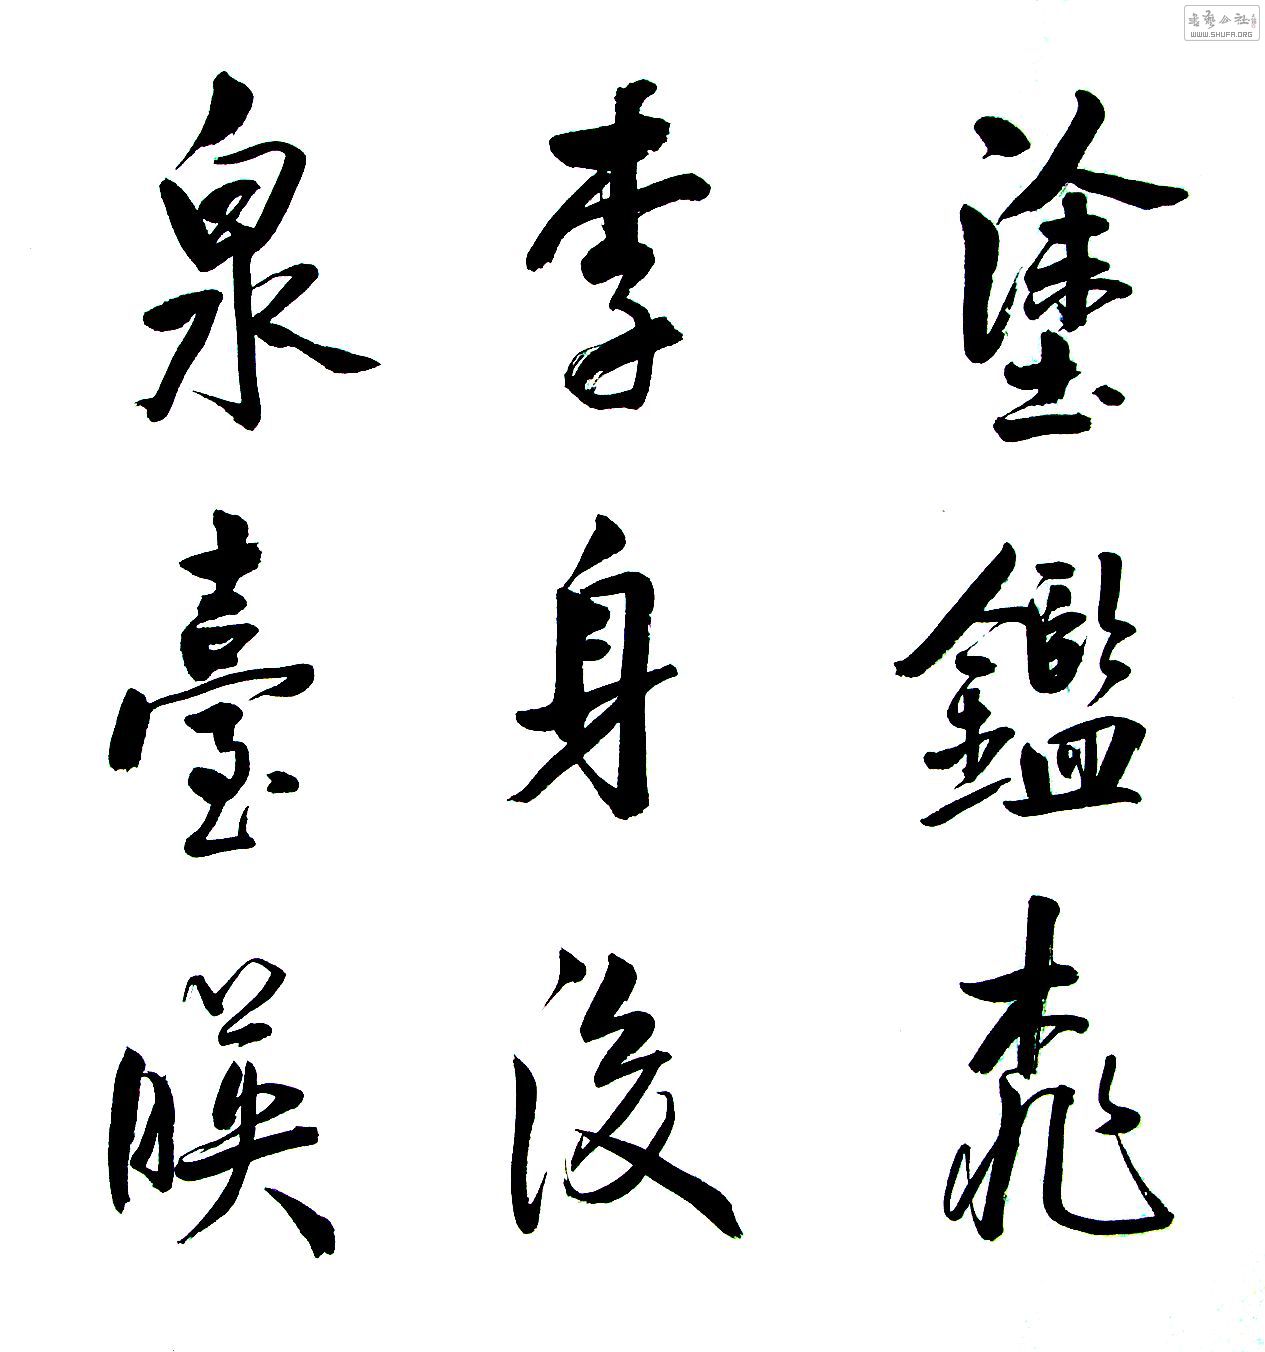 塗鑑桃
李身後
泉臺暎
書藝公社
WWW.SHUFA.ORG